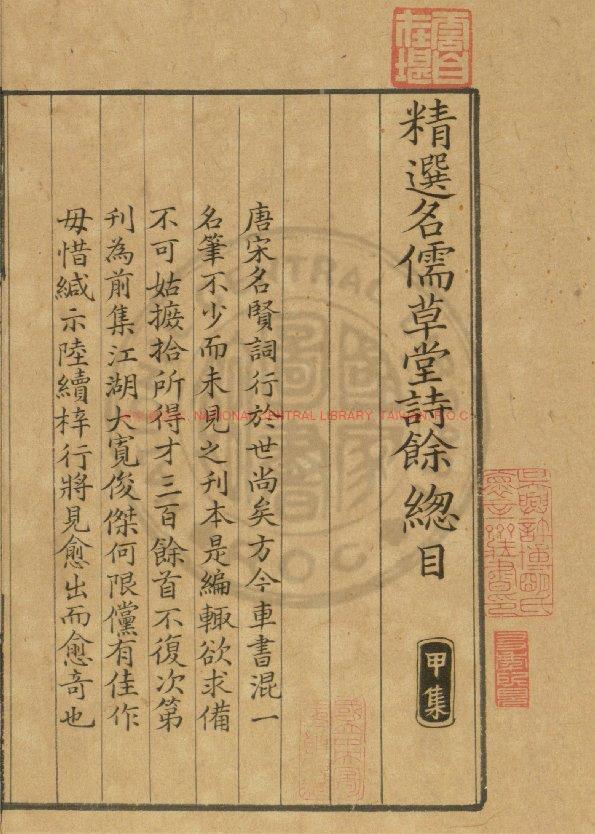 精選名儒草堂詩餘總目 甲集
唐宋名賢詞行於世尚矣方今車書混一
名筆不少而未見之刊本是編輙欲求備
不可姑摭拾所得才三百餘首不復次第
刊為前集江湖大寬俊傑何限儻有佳作
毋惜緘示陸續梓行將見愈出而愈竒也
NATIONAL CENTRAL LIBRARY, TAIWAN, R.O.C.